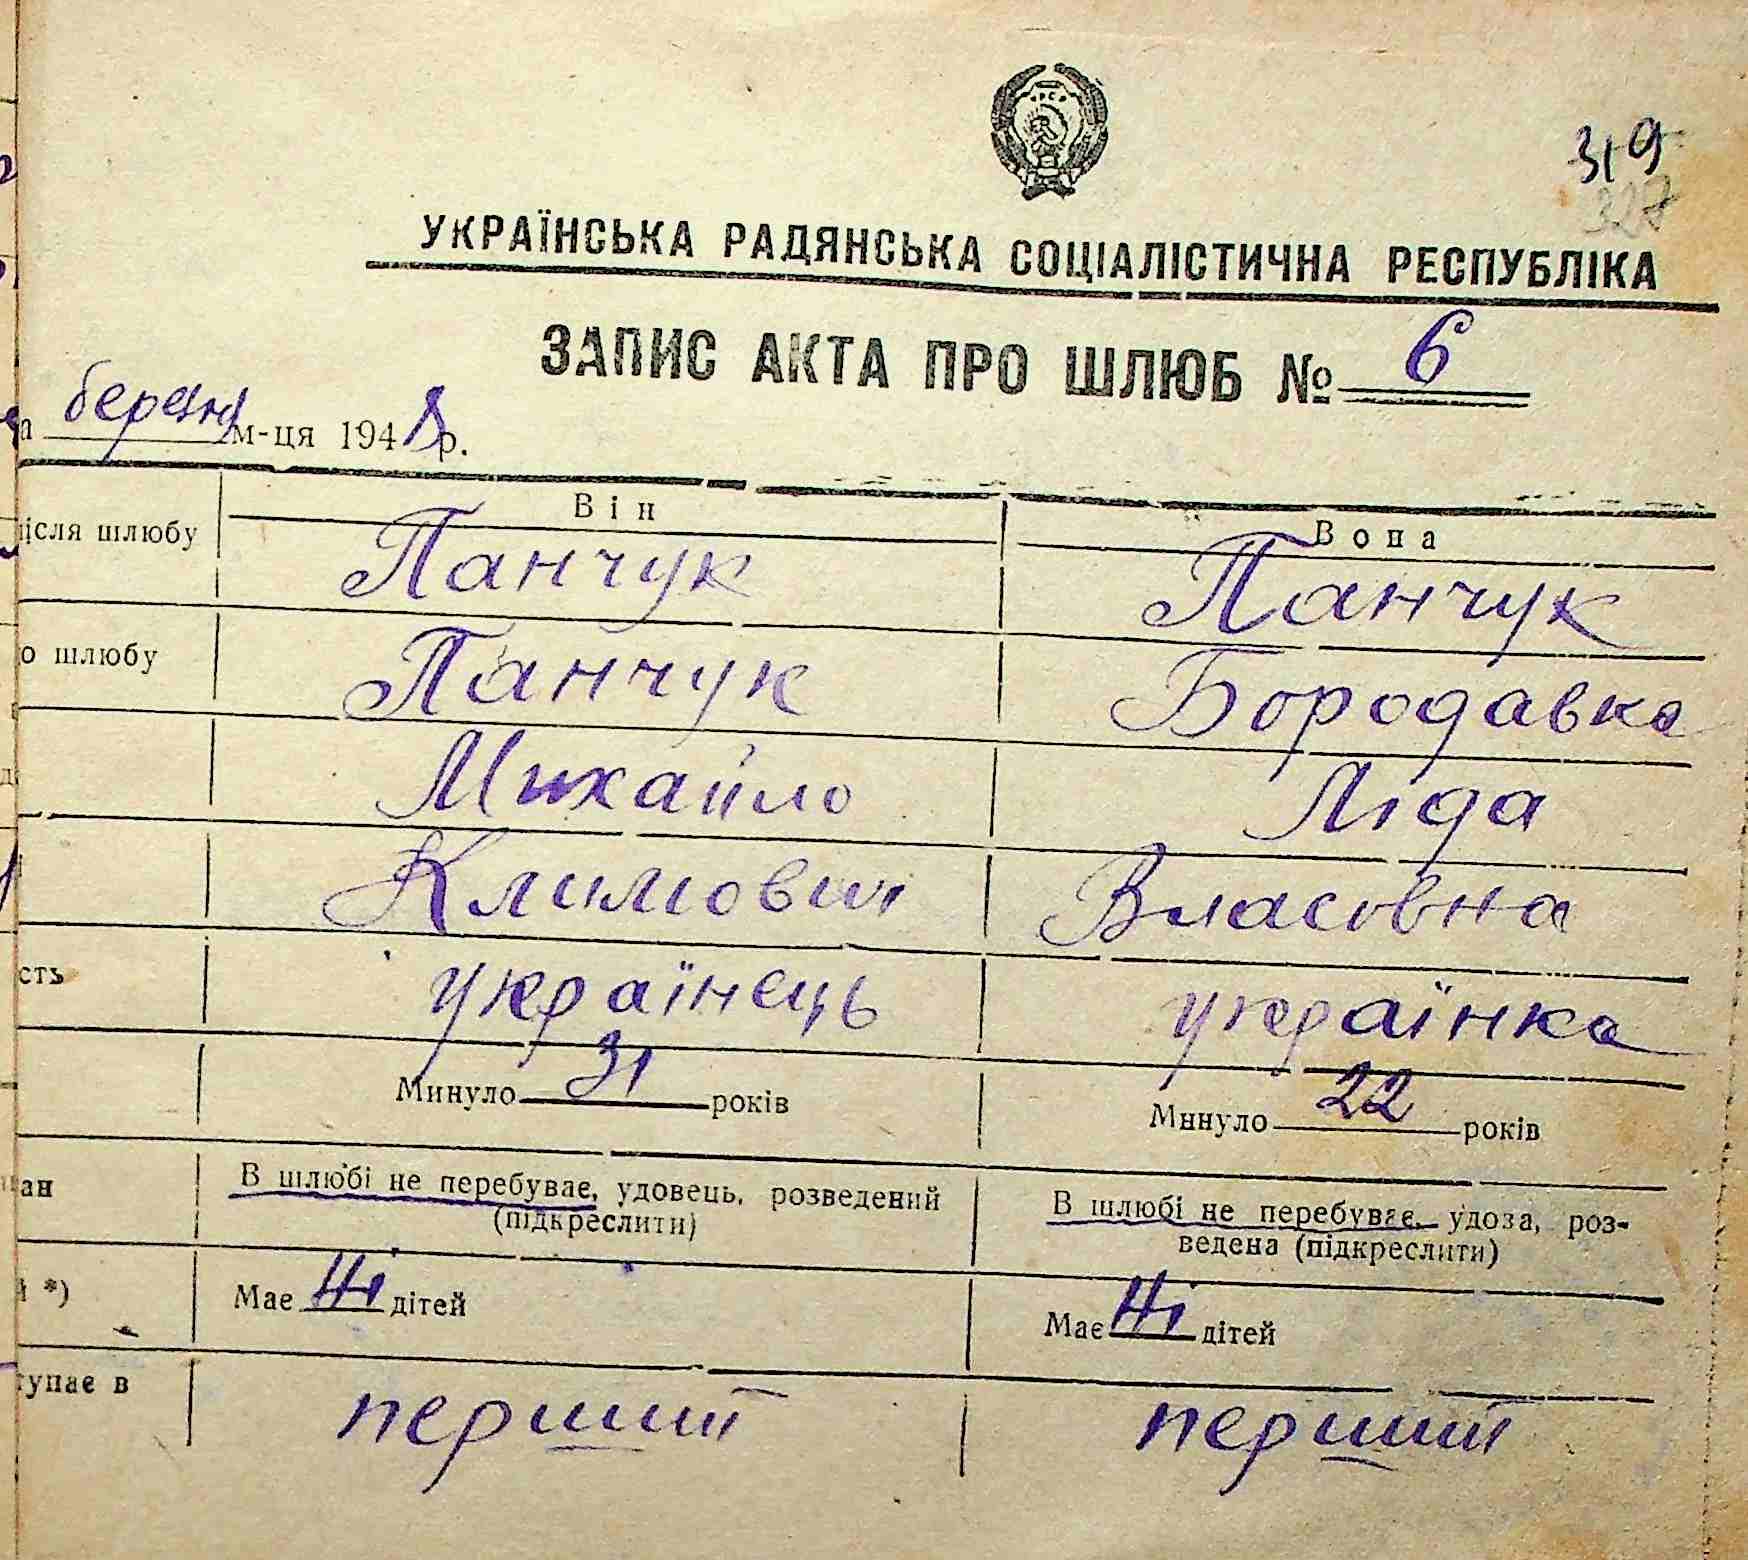 319
327
УКРАЇНСЬКА РАДЯНСЬКА СОЦІАЛІСТИЧНА РЕСПУБЛІКА
ЗАПИС АКТА ПРО ШЛЮБ № 6
а березня м-ця 1948 р.
Він Вона
ісля шлюбу Панчук Панчук
о шлюбу Панчук Бородавка
Михайло Ліда
Климович Власовна
ість українець українка
Минуло 31 років Минуло 22 років
ан В шлюбі не перебуває, удовець, розведений В шлюбі не перебуває, удова, роз-
(підкреслити) ведена (підкреслити)
й *) Має Ні дітей Має Ні дітей
тупає в перший перший